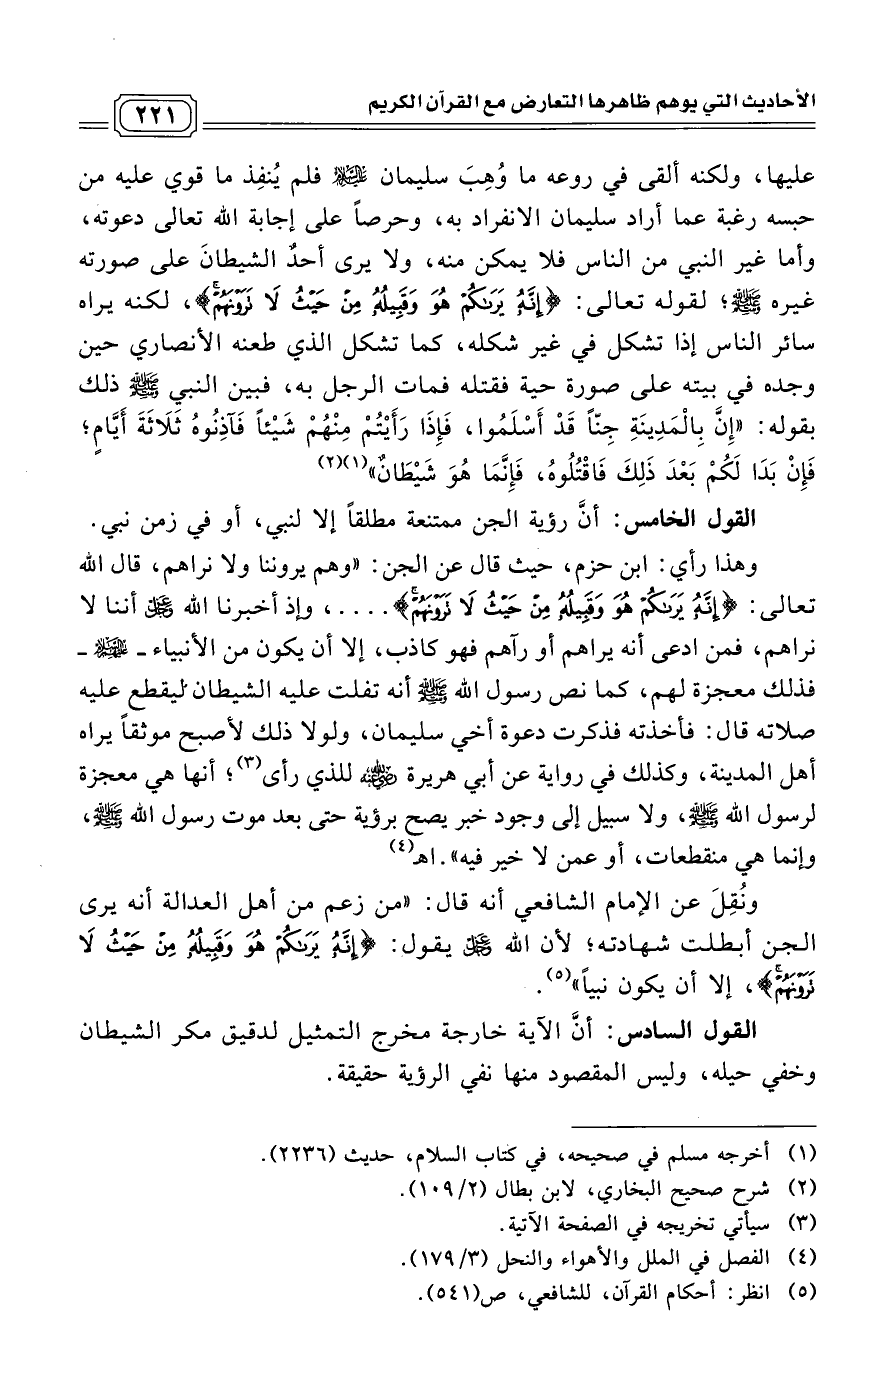 الأحاديث التي يوهم ظاهرها التعارض مع القرآن الكريم
٢٢١
عليها، ولكنه ألقى في روعه ما وُهِبَ سليمان ﵇ فلم يُنفِذ ما قوي عليه من
حبسه رغبة عما أراد سليمان الانفراد به، وحرصاً على إجابة الله تعالى دعوته،
وأما غير النبي من الناس فلا يمكن منه، ولا يرى أحدٌ الشيطانَ على صورته
غيره ﷺ؛ لقوله تعالى: ﴿إِنَّهُ يَرَىٰكُمْ هُوَ وَقَبِيلُهُ مِنْ حَيْثُ لَا نَرَوْنَهُمْ﴾، لكنه يراه
سائر الناس إذا تشكل في غير شكله، كما تشكل الذي طعنه الأنصاري حين
وجده في بيته على صورة حية فقتله فمات الرجل به، فبين النبي ﷺ ذلك
بقوله: «إِنَّ بِالْمَدِينَةِ جِنّاً قَدْ أَسْلَمُوا، فَإِذَا رَأَيْتُمْ مِنْهُمْ شَيْئاً فَآذِنُوهُ ثَلَاثَةَ أَيَّامٍ؛
فَإِنْ بَدَا لَكُمْ بَعْدَ ذَلِكَ فَاقْتُلُوهُ، فَإِنَّمَا هُوَ شَيْطَانٌ»(١)(٢)
القول الخامس: أنَّ رؤية الجن ممتنعة مطلقاً إلا لنبي، أو في زمن نبي.
وهذا رأي: ابن حزم، حيث قال عن الجن: «وهم يروننا ولا نراهم، قال الله
تعالى: ﴿إِنَّهُ يَرَىٰكُمْ هُوَ وَقَبِيلُهُ مِنْ حَيْثُ لَا نَرَوْنَهُمْ﴾.....، وإذ أخبرنا الله ﷿ أننا لا
نراهم، فمن ادعى أنه يراهم أو رآهم فهو كاذب، إلا أن يكون من الأنبياء ـ ﵈ ـ
فذلك معجزة لهم، كما نص رسول الله ﷺ أنه تفلت عليه الشيطان ليقطع عليه
صلاته قال: فأخذته فذكرت دعوة أخي سليمان، ولولا ذلك لأصبح موثقاً يراه
أهل المدينة، وكذلك في رواية عن أبي هريرة ﵁ للذي رأى(٣)؛ أنها هي معجزة
لرسول الله ﷺ، ولا سبيل إلى وجود خبر يصح برؤية حتى بعد موت رسول الله ﷺ،
وإنما هي منقطعات، أو عمن لا خير فيه».اهـ(٤)
ونُقِلَ عن الإمام الشافعي أنه قال: «من زعم من أهل العدالة أنه يرى
الجن أبطلت شهادته؛ لأن الله ﷿ يقول: ﴿إِنَّهُ يَرَىٰكُمْ هُوَ وَقَبِيلُهُ مِنْ حَيْثُ لَا
نَرَوْنَهُمْ﴾، إلا أن يكون نبياً»(٥).
القول السادس: أنَّ الآية خارجة مخرج التمثيل لدقيق مكر الشيطان
وخفي حيله، وليس المقصود منها نفي الرؤية حقيقة.
(١) أخرجه مسلم في صحيحه، في كتاب السلام، حديث (٢٢٣٦).
(٢) شرح صحيح البخاري، لابن بطال (١٠٩/٢).
(٣) سيأتي تخريجه في الصفحة الآتية.
(٤) الفصل في الملل والأهواء والنحل (١٧٩/٣).
(٥) انظر: أحكام القرآن، للشافعي، ص(٥٤١).